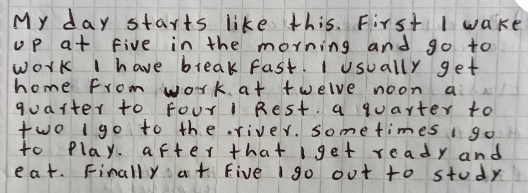 My day starts like this. First I wake
up at five in the morning and go to
work I have break fast. I usually get
home from work at twelve noon a
quarter to four I Rest. a quarter to
two I go to the river. sometimes I go
to Play. after that I get ready and
eat. Finally at five I go out to study